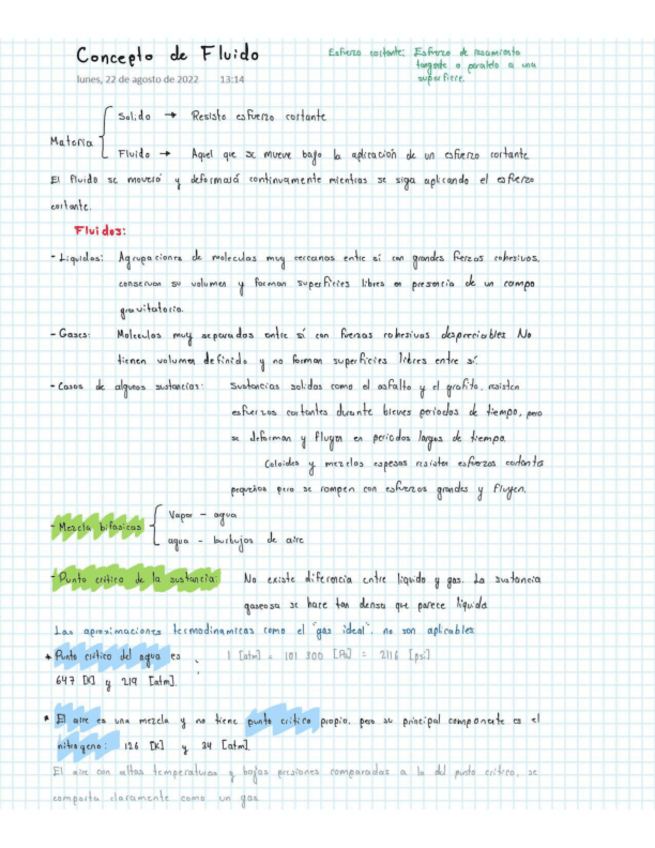 Concepto de Fluido
lunes, 22 de agosto de 2022 13:14
Esfuerzo cortante: Esfuerzo de rozamiento
tangente o paralelo a una
superficie.
Solido → Resiste esfuerzo cortante
Materia
Fluido → Aquel que se mueve bajo la aplicación de un esfuerzo cortante
El fluido se moverá y deformará continuamente mientras se siga aplicando el esfuerzo
cortante.
Fluidos:
- Liquidos: Agrupaciones de moleculas muy cercanas entre sí con grandes fuerzas cohesivas,
conservan su volumen y forman superficies libres en presencia de un campo
gravitatorio.
- Gases: Moleculas muy separadas entre sí con fuerzas cohesivas despreciables No
tienen volumen definido y no forman superficies libres entre sí.
- Casos de algunas sustancias: Sustancias solidas como el asfalto y el grafito, resisten
esfuerzos cortantes durante breves periodos de tiempo, pero
se deforman y fluyen en periodos largos de tiempo.
Coloides y mezclas espesas resisten esfuerzos cortantes
pequeños pero se rompen con esfuerzos grandes y fluyen.
- Mezcla bifasicas
Vapor - agua
agua - burbujas de aire
- Punto crítico de la sustancia: No existe diferencia entre liquido y gas. La sustancia
gaseosa se hace tan densa que parece liquida
Las aproximaciones termodinamicas como el "gas ideal", no son aplicables
* Punto crítico del agua es 1 [atm] = 101 300 [Pa] = 2116 [psi]
647 [K] y 219 [atm].
* El aire es una mezcla y no tiene punto crítico propio, pero su principal componente es el
nitrogeno: 126 [K] y 34 [atm].
El aire con altas temperaturas y bajas presiones comparadas a la del punto crítico, se
comporta claramente como un gas